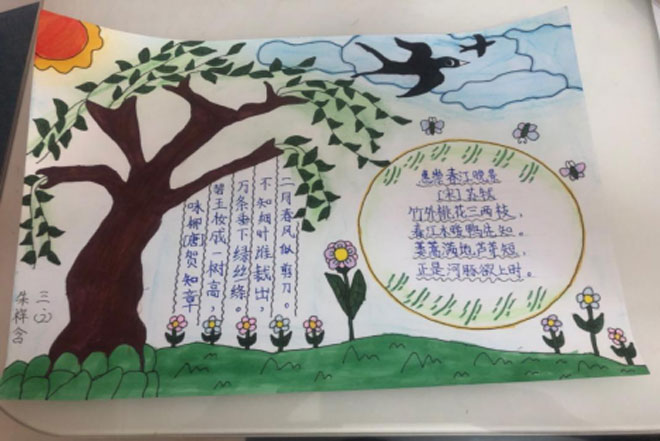 咏柳[唐]贺知章
碧玉妆成一树高，
万条垂下绿丝绦。
不知细叶谁裁出，
二月春风似剪刀。
惠崇春江晚景
[宋]苏轼
竹外桃花三两枝，
春江水暖鸭先知。
蒌蒿满地芦芽短，
正是河豚欲上时。
三（2）